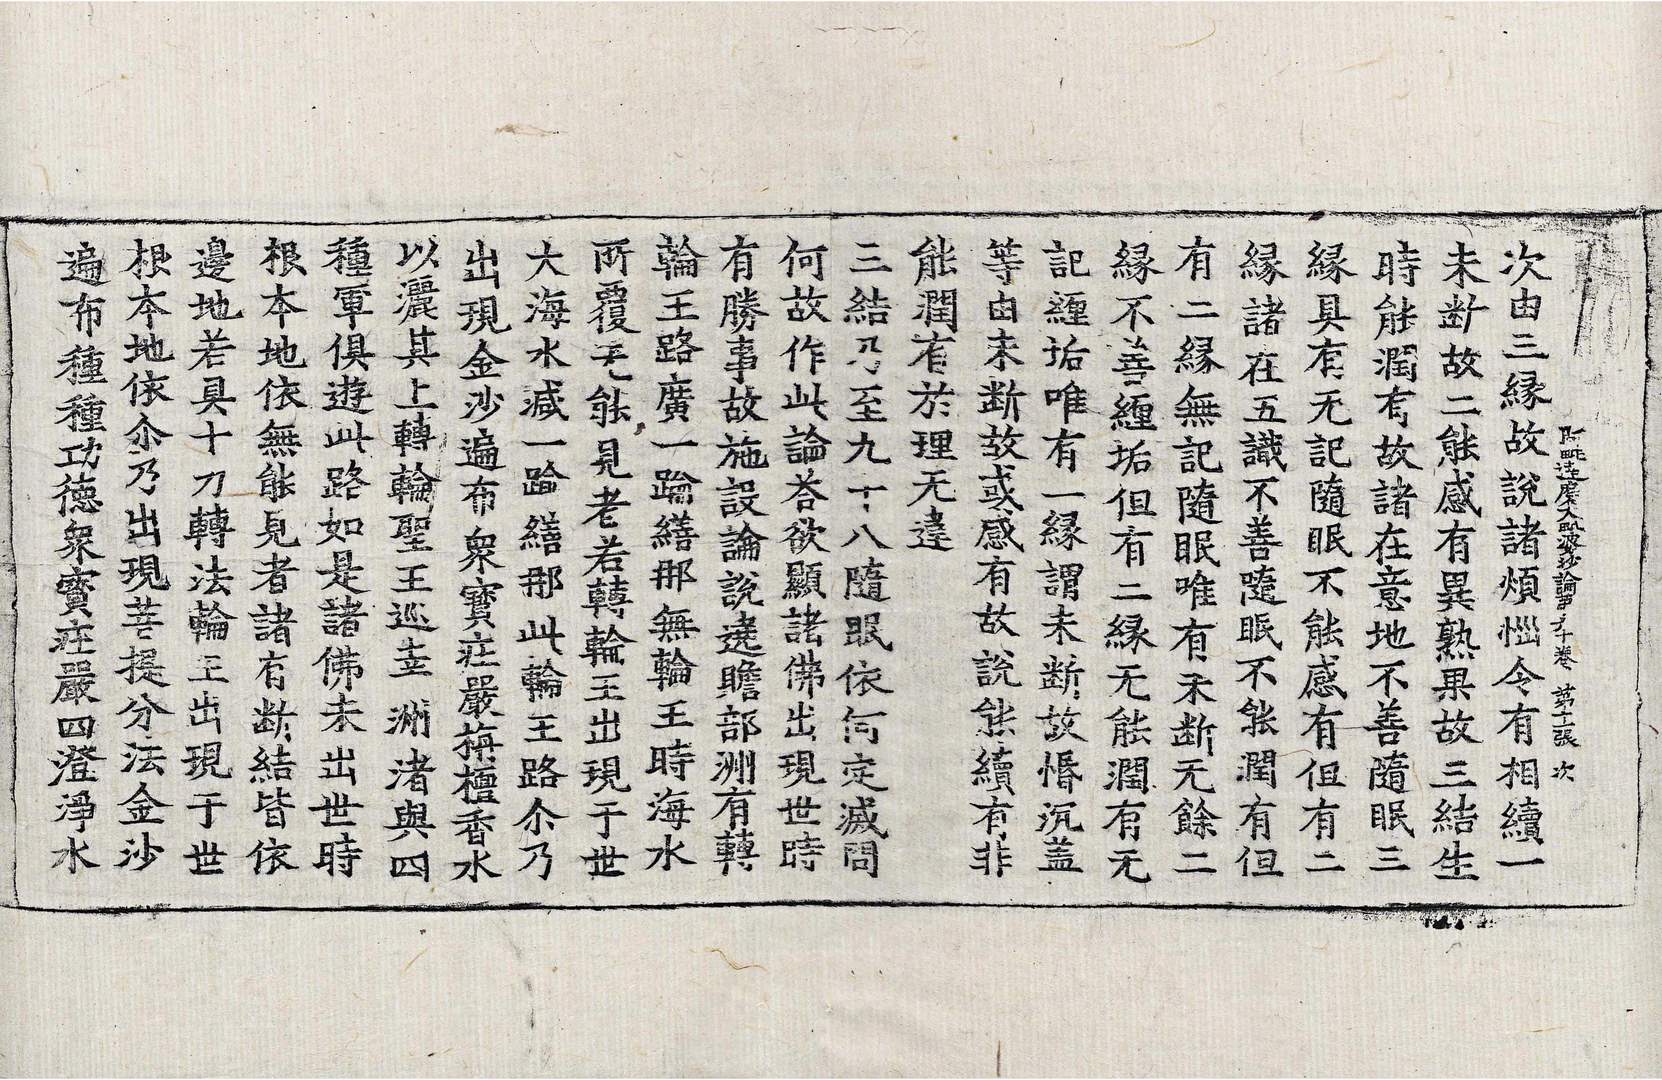 阿毗達磨大毗婆沙論第九十卷　第十張　次
次由三縁故說諸煩惱令有相續一
未断故二能感有異熟果故三結生
時能潤有故諸在意地不善隨眠三
縁具有无記隨眠不能感有但有二
縁諸在五識不善隨眠不能潤有但
有二縁無記隨眠唯有未断无餘二
縁不善纏垢但有二縁无能潤有无
記纏垢唯有一縁謂未断故惛沉盖
等由未断故或感有故說能續有非
能潤有於理无違
三結乃至九十八隨眠依何定滅問
何故作此論荅欲顯諸佛出現世時
有勝事故施設論說遶贍部洲有轉
輪王路廣一踰繕那無輪王時海水
所覆无能見者若轉輪王出現于世
大海水減一踰繕那此輪王路尒乃
出現金沙遍布衆寳莊嚴栴檀香水
以灑其上轉輪聖王巡幸洲渚與四
種軍俱遊此路如是諸佛未出世時
根本地依無能見者諸有断結皆依
邊地若具十力轉法輪王出現于世
根本地依尒乃出現菩提分法金沙
遍布種種功德衆寳莊嚴四澄淨水